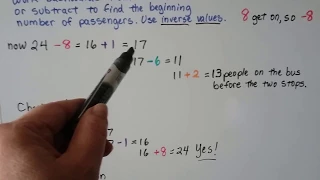 or subtract to find the beginning
number of passengers. Use inverse values.
8 get on, so -8
now 24 - 8 = 16 + 1 = 17
17 - 6 = 11
11 + 2 = 13 people on the bus
before the two stops.
7
7 - 1 = 16
16 + 8 = 24 Yes!